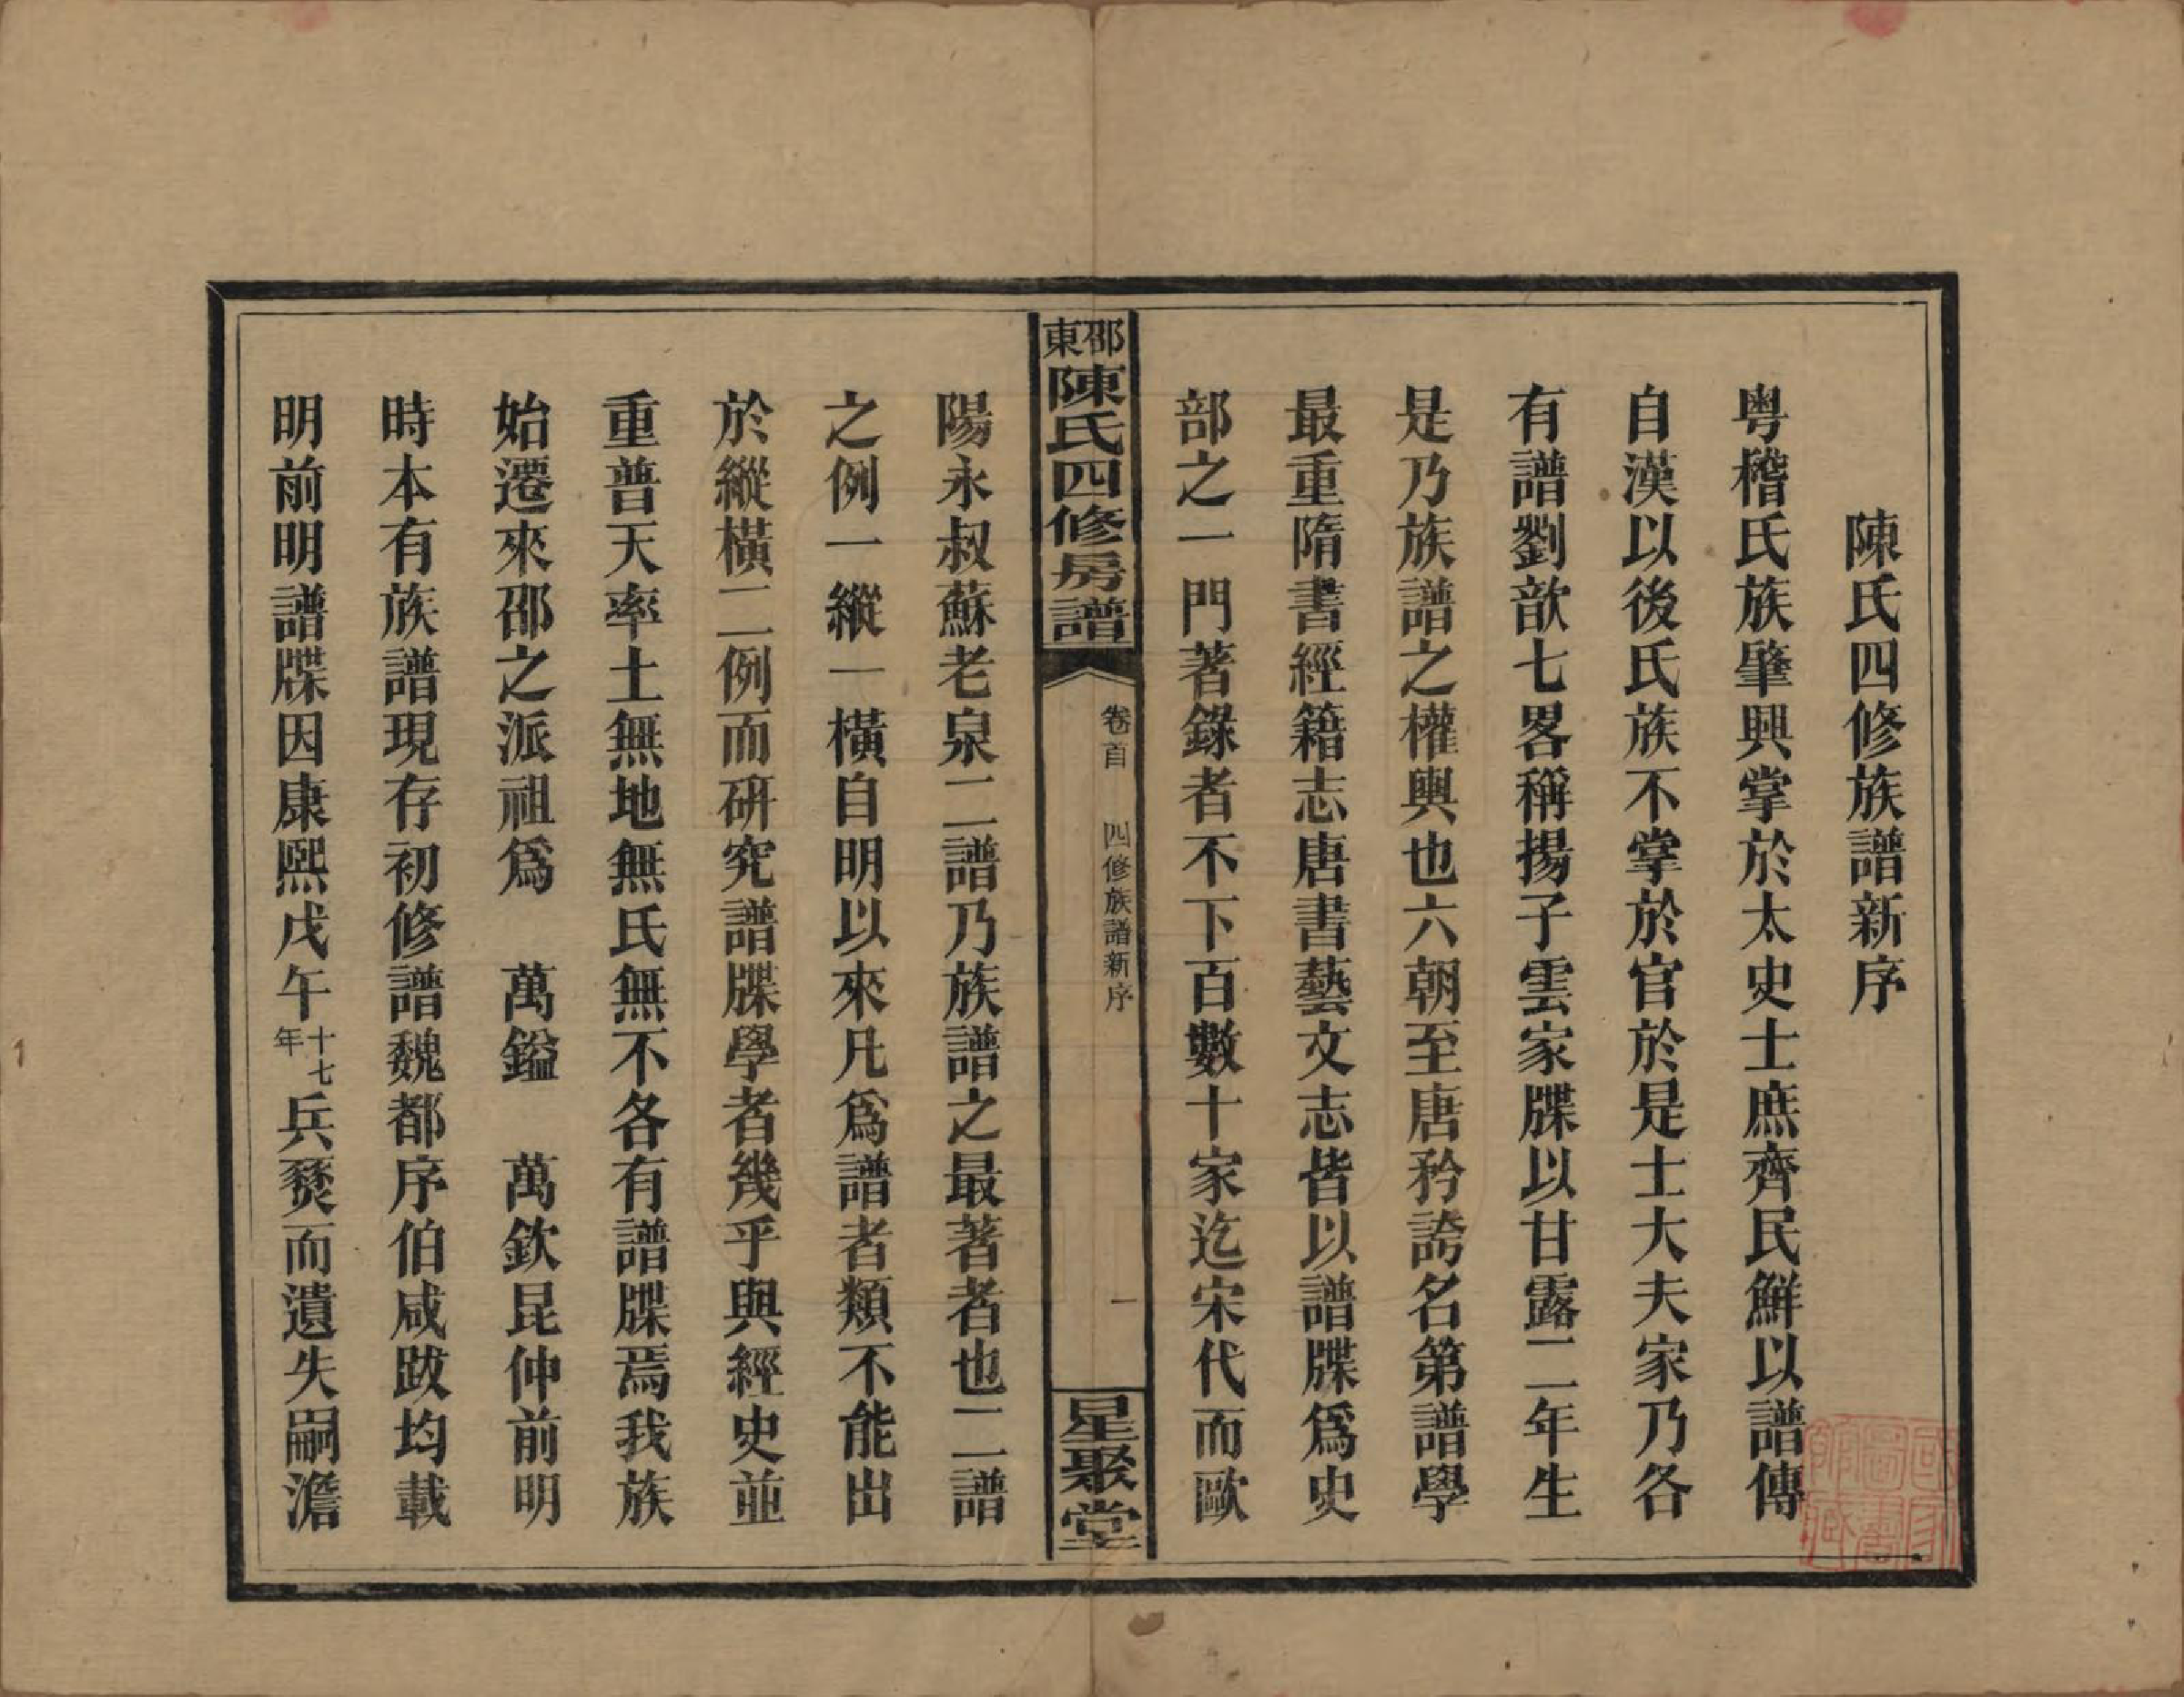 陳氏四修族譜新序
粵稽氏族肇興掌於太史士庶齊民鮮以譜傳
自漢以後氏族不掌於官於是士大夫家乃各
有譜劉歆七畧稱揚子雲家牒以甘露二年生
是乃族譜之權輿也六朝至唐矜誇名第譜學
最重隋書經籍志唐書藝文志皆以譜牒爲史
部之一門著錄者不下百數十家迄宋代而歐
邵東陳氏四修房譜
卷首 四修族譜新序
一
星聚堂
陽永叔蘇老泉二譜乃族譜之最著者也二譜
之例一縱一橫自明以來凡爲譜者類不能出
於縱橫二例而硏究譜牒學者幾乎與經史並
重普天率土無地無氏無不各有譜牒焉我族
始遷來邵之派祖爲 萬鎰 萬欽昆仲前明
時本有族譜現存初修譜魏都序伯咸跋均載
明前明譜牒因康熙戊午十七年兵燹而遺失嗣澹
國家圖書館藏